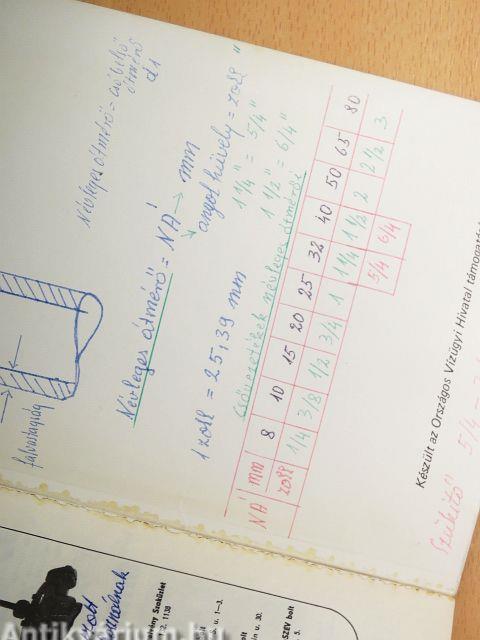 Névleges átmérő = cső belső
átmérő
d1
falvastagság
Névleges átmérő = NÁ → mm
angol hüvely = zoll "
1 zoll = 25,39 mm
1 1/4" = 5/4"
1 1/2" = 6/4"
Csővezetékek névleges átmérői
NÁ mm 8 10 15 20 25 32 40 50 65 80
zoll 1/4 3/8 1/2 3/4 1 1 1/4 1 1/2 2 2 1/2 3
5/4 6/4
Készült az Országos Vízügyi Hivatal támogatás
Szűkítő 5/4 =
Szaküzlet
1138
u. 1–3.
u. 30.
SZEV bolt
5.
Antikvarium.hu